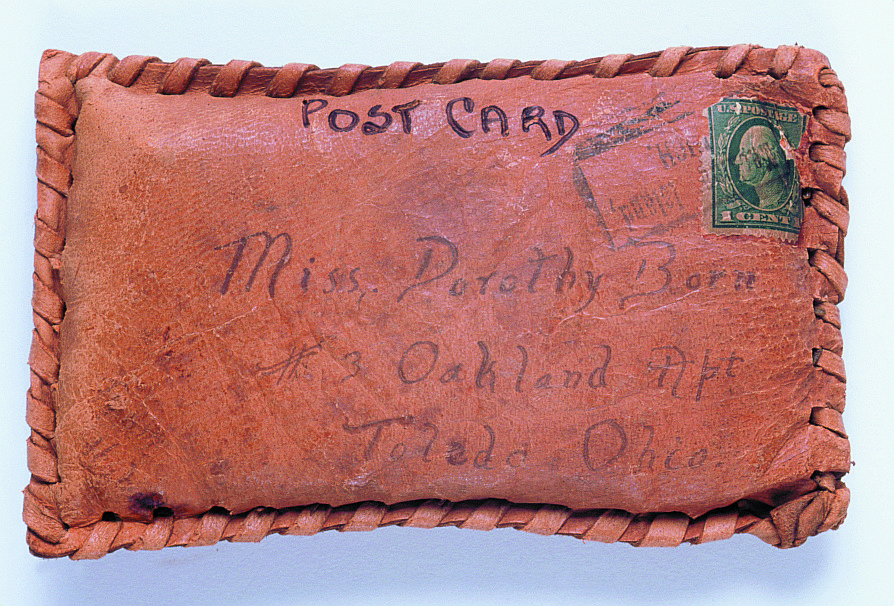 POST CARD
U.S. POSTAGE
1 CENT
Miss. Dorothy Born
# 3 Oakland Apt
Toledo Ohio.